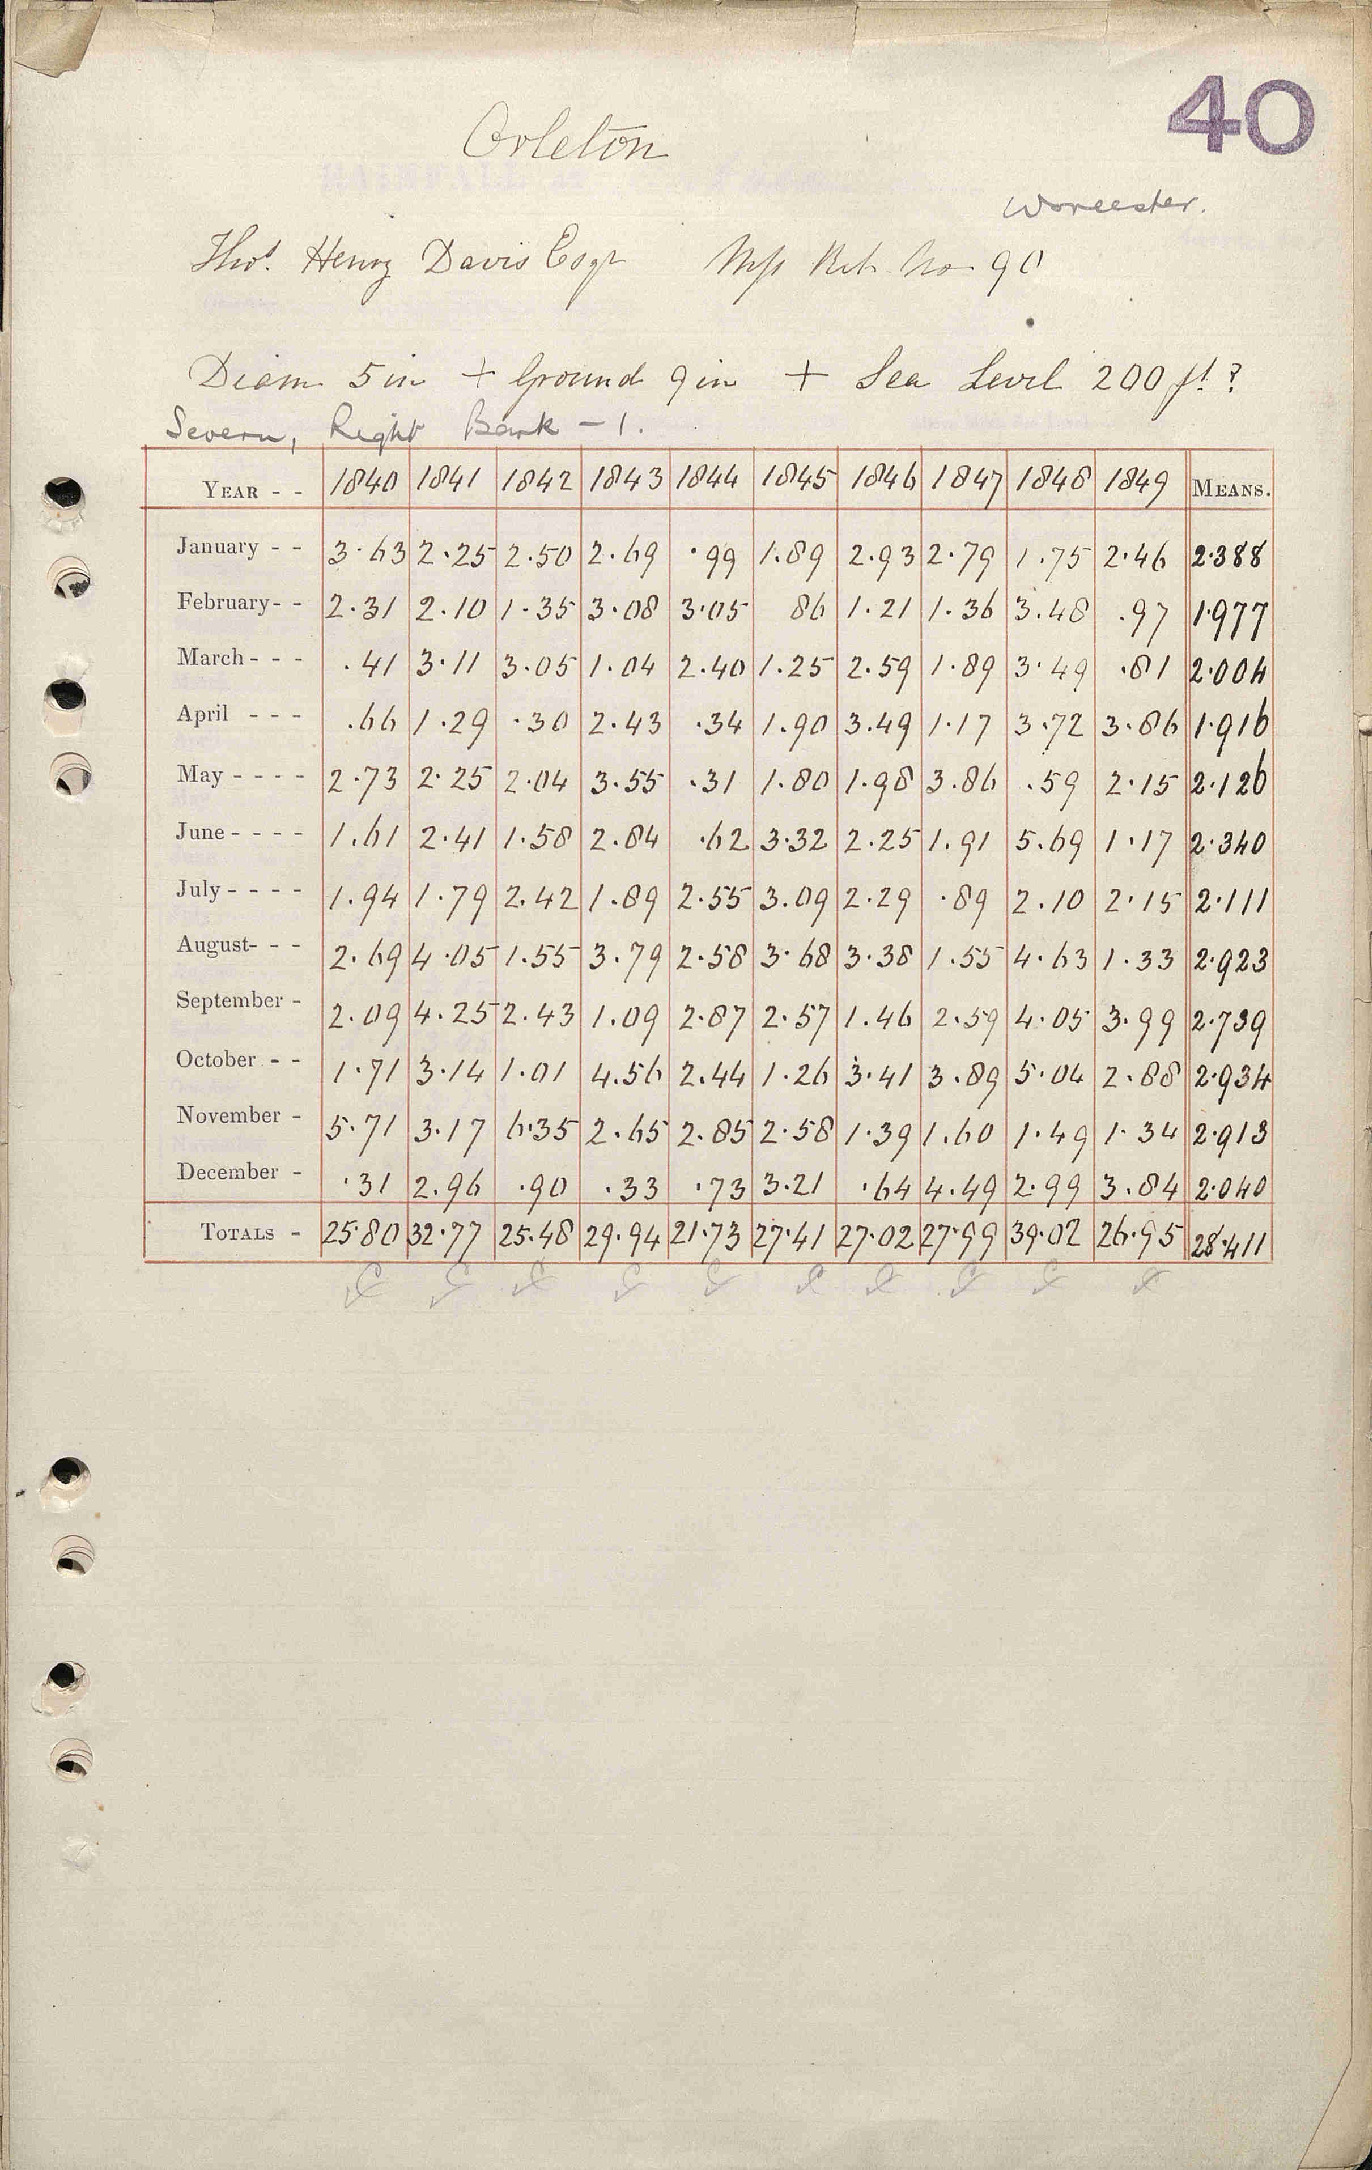 40
Orleton
Worcester.
Thos. Henry Davis Esqr Mss Bk No 90
Diam 5 in + Ground 9 in + Sea Level 200 ft ?
Severn, Right Bank - 1.
YEAR - - 1840 1841 1842 1843 1844 1845 1846 1847 1848 1849 MEANS.
January - - 3.63 2.25 2.50 2.69 .99 1.89 2.93 2.79 1.75 2.46 2.388
February - - 2.31 2.10 1.35 3.08 3.05 86 1.21 1.36 3.48 .97 1.977
March - - - .41 3.11 3.05 1.04 2.40 1.25 2.59 1.89 3.49 .81 2.004
April - - - .66 1.29 .30 2.43 .34 1.90 3.49 1.17 3.72 3.86 1.916
May - - - - 2.73 2.25 2.04 3.55 .31 1.80 1.98 3.86 .59 2.15 2.126
June - - - - 1.61 2.41 1.58 2.84 .62 3.32 2.25 1.91 5.69 1.17 2.340
July - - - - 1.94 1.79 2.42 1.89 2.55 3.09 2.29 .89 2.10 2.15 2.111
August - - - 2.69 4.05 1.55 3.79 2.58 3.68 3.38 1.55 4.63 1.33 2.923
September - 2.09 4.25 2.43 1.09 2.87 2.57 1.46 2.59 4.05 3.99 2.739
October - - 1.71 3.14 1.01 4.56 2.44 1.26 3.41 3.89 5.04 2.88 2.934
November - 5.71 3.17 6.35 2.65 2.85 2.58 1.39 1.60 1.49 1.34 2.913
December - .31 2.96 .90 .33 .73 3.21 .64 4.49 2.99 3.84 2.040
TOTALS - 25.80 32.77 25.48 29.94 21.73 27.41 27.02 27.99 39.02 26.95 28.411